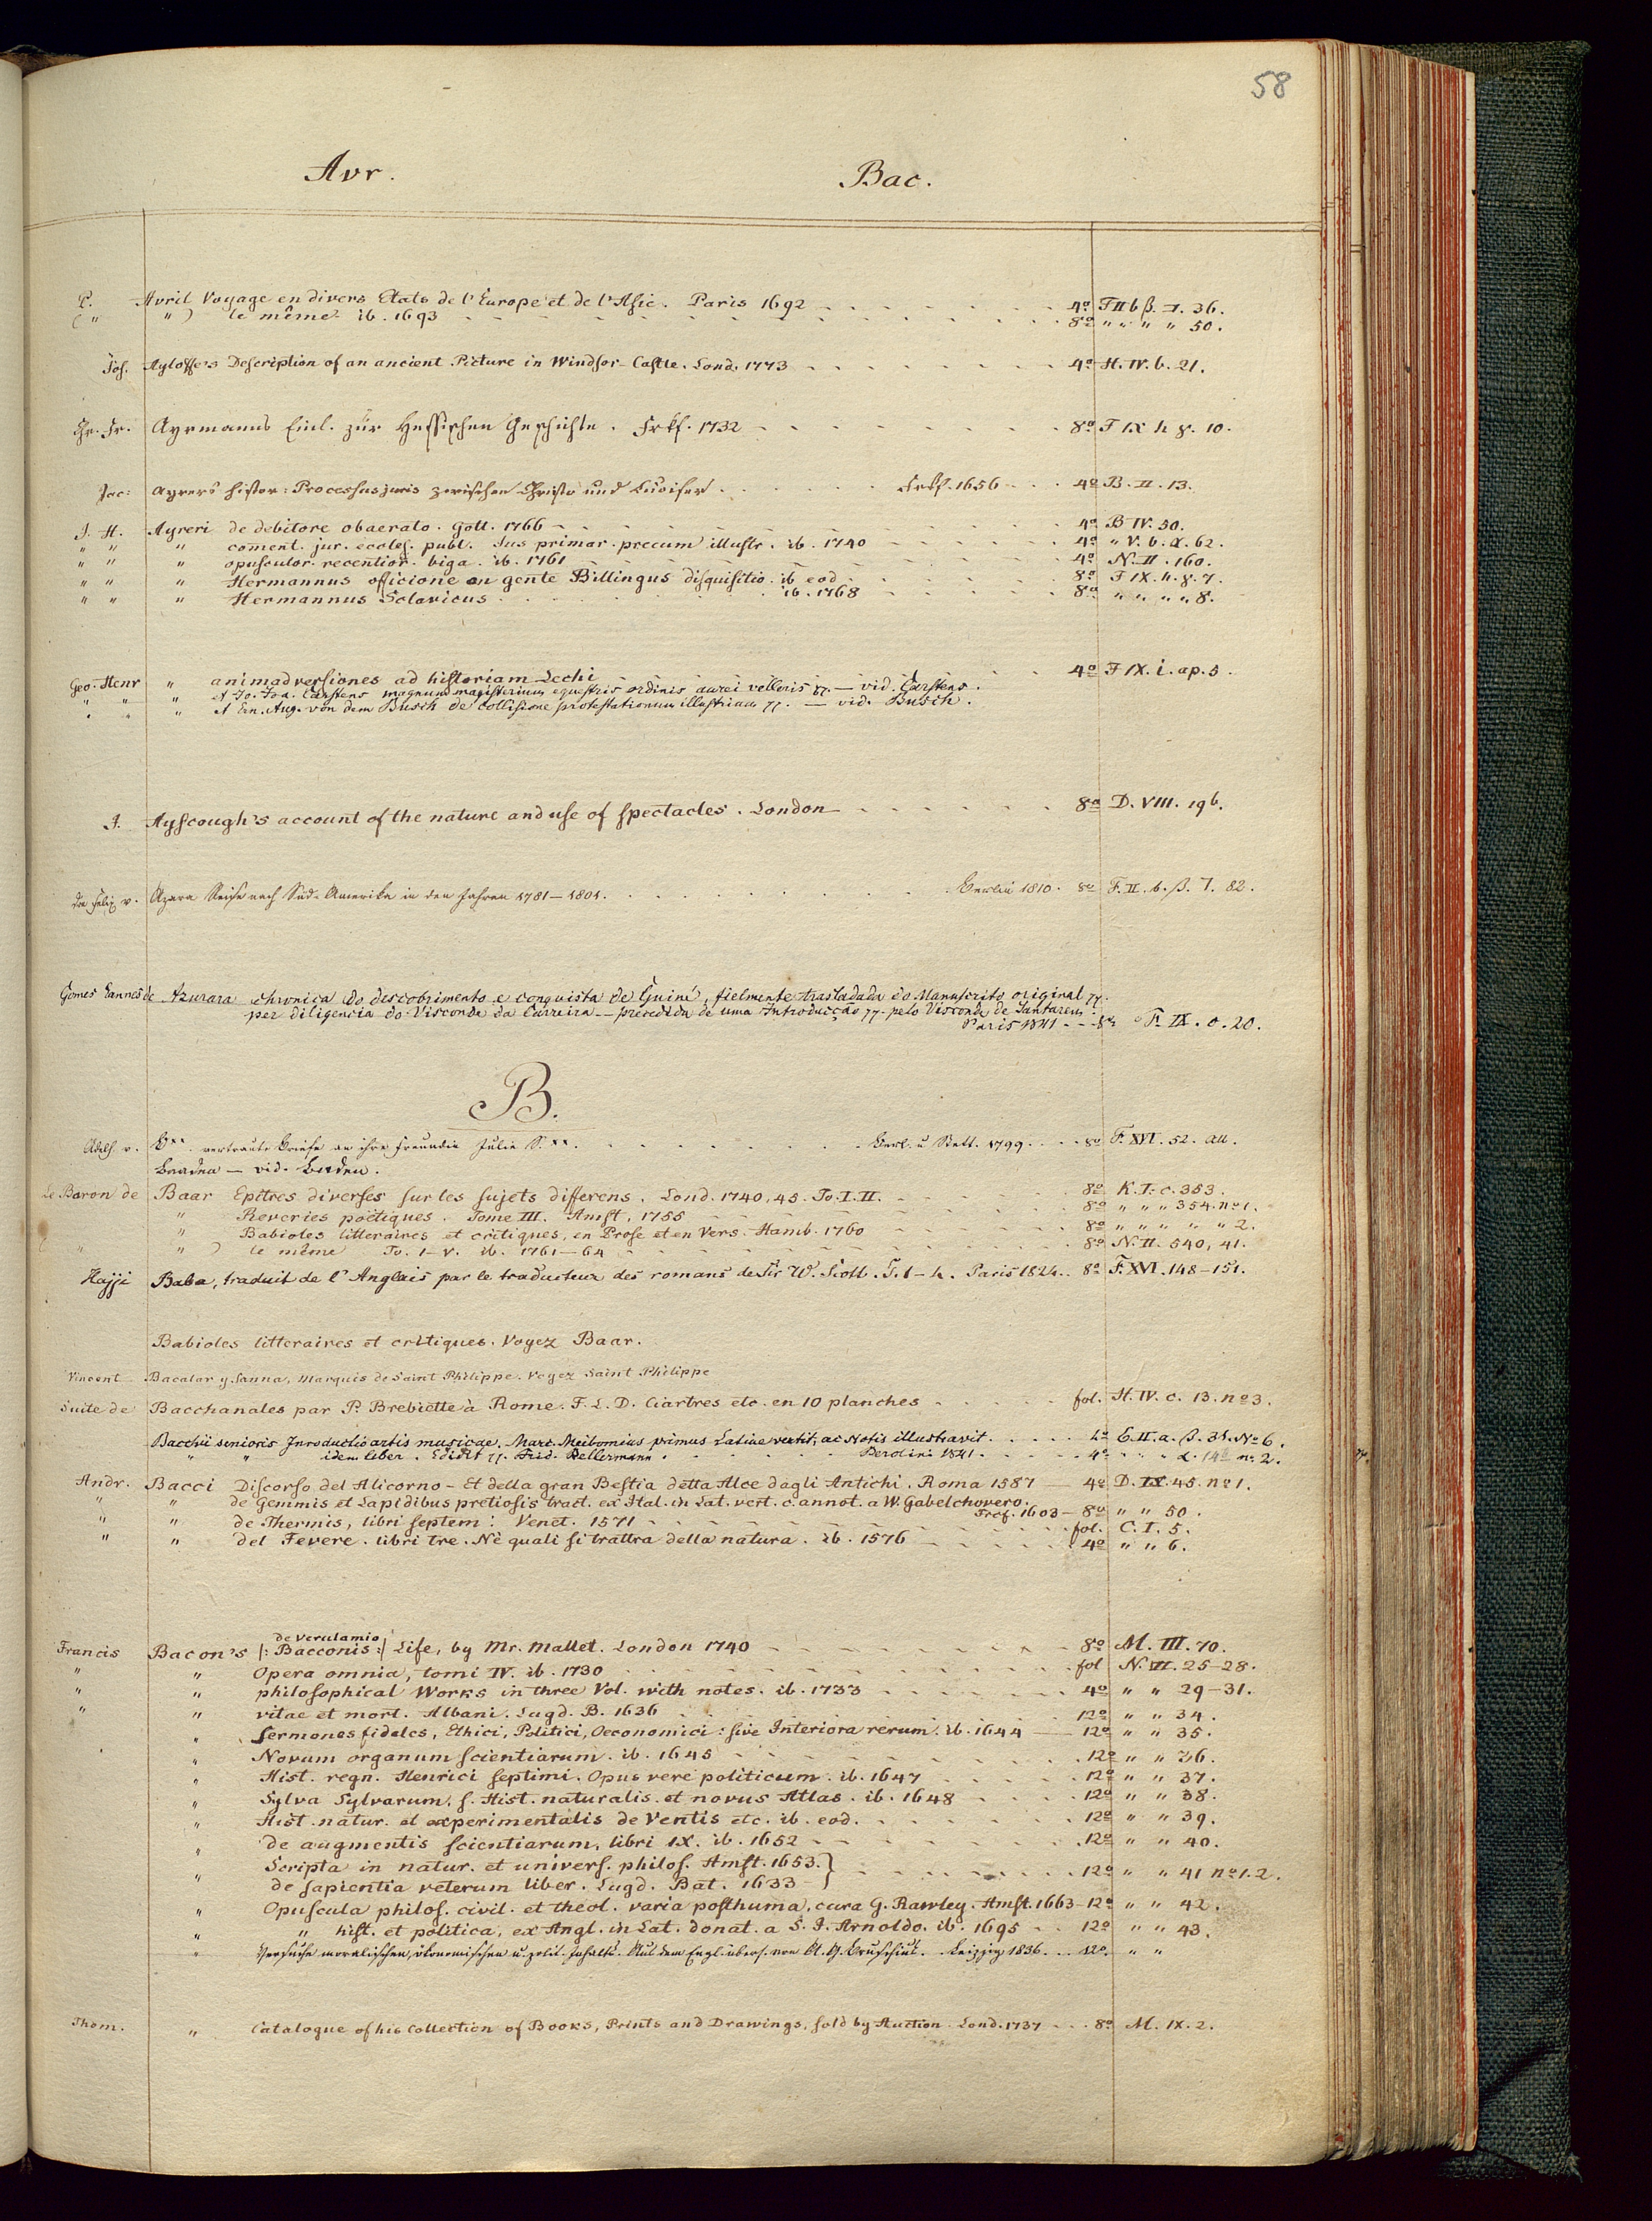 58
Avr. Bac.
P. Avril Voyage en divers Etats de l'Europe et de l'Asie. Paris 1692 4º F II b β. 7. 36.
( " " ) le même ib. 1693 8º " " " " 50.
Jos. Ayloffe's Description of an ancient Picture in Windsor-Castle. Lond. 1773 4º H. IV. b. 21.
Chr. Fr. Ayrmanns Einl. zür Hessischen Geschichte. Frkf. 1732 8º F IX h 8. 10.
Jac: Ayrers histor: Processus juris zwischen Christo und Lucifer. Frkf. 1656 4º B. II. 13.
J. H. Ayreri de debitore obaerato. Gott. 1766 4º B IV. 50.
" " " coment. jur. eccles. publ. Jus primar. precum illustr. ib. 1740 4º " V. b. α. 62.
" " " opusculor. recentior. biga. ib. 1761 4º N. II. 160.
" " " Hermannus officione an gente Billingus disquisitio. ib eod 8º F IX. h. 8. 7.
" " " Hermannus Sclavicus ib. 1768 8º " " " " 8.
Geo. Henr " animadversiones ad historiam Lechi 4º F IX. i. ap. 5.
" " " et Jo. Joa. Carstens magnum magisterium equestris ordinis aurei velleris — vid. Carstens.
" " " et Ern. Aug. von dem Busch de collisione protestationum illustrium — vid. Busch.
J. Ayscough's account of the nature and use of spectacles. London 8º D. VIII. 196.
Don Felix v. Azara Reise nach Süd-Amerika in den Jahren 1781–1801. Berlin 1810. 8º F. II. b. β. 7. 82.
Gomes Eannes de Azurara chronica do descobrimento e conquista de Guiné, fielmente trasladada do Manuscrito original
per diligencia do Visconde da Carreira — precedida de uma Introducção pelo Visconde de Santarem.
Paris 1841 8º F. IX. o. 20.
B.
Adelh. v. B** vertraute Briefe an ihre Freundin Julie S.** Berl. u Stett. 1799. 8º F. XVI. 52. aa.
Baaden — vid. Baden.
Le Baron de Baar Epitres diverses sur les sujets differens. Lond. 1740, 45. To. I. II. 8º K. I. c. 353.
" Reveries poëtiques. Tome III. Amst. 1755 8º " " " 354. nº 1.
" Babioles litteraires et critiques, en Prose et en Vers. Hamb. 1760 8º " " " " " 2.
( " " ) le même To. I–V. ib. 1761–64 8º N. II. 540, 41.
Hajji Baba, traduit de l'Anglais par le traducteur des romans de Sir W. Scott. T. 1–4. Paris 1824. 8º F. XVI. 148–151.
Babioles litteraires et critiques. Voyez Baar.
Vincent Bacalar y Sanna, Marquis de Saint Philippe. Voyez Saint Philippe
Suite de Bacchanales par P. Brebiette à Rome. F. L. D. Ciartres etc. en 10 planches fol. H. IV. c. 13. nº 3.
Bacchii senioris Introductio artis musicae. Marc. Meibomius primus Latine vertit, ac Notis illustravit. 4º E. II. a. β. 34. Nº 6.
" " idem liber. Edidit Frid. Bellermann. Berolini 1841. 4º " " " α. 14 nº 2.
Andr. Bacci Discorso del Alicorno - Et della gran Bestia detta Alce dagli Antichi. Roma 1587 4º D. IX. 45. nº 1.
" " de Gemmis et Lapidibus pretiosis tract. ex Ital. in Lat. vert. c. annot. a W. Gabelchovero. Frcf. 1603 8º " " 50.
" " de Thermis, libri septem. Venet. 1571 fol. C. I. 5.
" " del Tevere. libri tre. Nè quali si trattra della natura. ib. 1576 4º " " 6.
de Verulamio
Francis Bacon's |: Bacconis :| Life, by Mr. Mallet. London 1740 8º M. III. 70.
" " Opera omnia, tomi IV. ib. 1730 fol N. VII. 25–28.
" " philosophical Works in three Vol. with notes. ib. 1733 4º " " 29–31.
" " vitae et mort. Albani. Lugd. B. 1636 12º " " 34.
" Sermones fideles, Ethici, Politici, Oeconomici: sive Interiora rerum. ib. 1644 12º " " 35.
" Novum organum scientiarum. ib. 1645 12º " " 36.
" Hist. regn. Henrici septimi. Opus vere politicum. ib. 1647 12º " " 37.
" Sylva Sylvarum, s. Hist. naturalis. et novus Atlas. ib. 1648 12º " " 38.
" Hist. natur. et experimentalis de Ventis etc. ib. eod. 12º " " 39.
" de augmentis scientiarum, libri IX. ib. 1652 12º " " 40.
" Scripta in natur. et univers. philos. Amst. 1653. } 12º " " 41 nº 1. 2.
de sapientia veterum liber. Lugd. Bat. 1633
" Opuscula philos. civil. et theol. varia posthuma, cura G. Rawley. Amst. 1663 12º " " 42.
" " hist. et politica, ex Angl. in Lat. donat. a S. J. Arnoldo. ib. 1695 12º " " 43.
" Versuche moralischen, ökonomischen u. polit. Inhalts. Aus dem Engl. übers. von A. G. Bruschius. Leipzig 1836. 12º " "
Thom. " Catalogue of his Collection of Books, Prints and Drawings, sold by Auction. Lond. 1737 8º M. IX. 2.